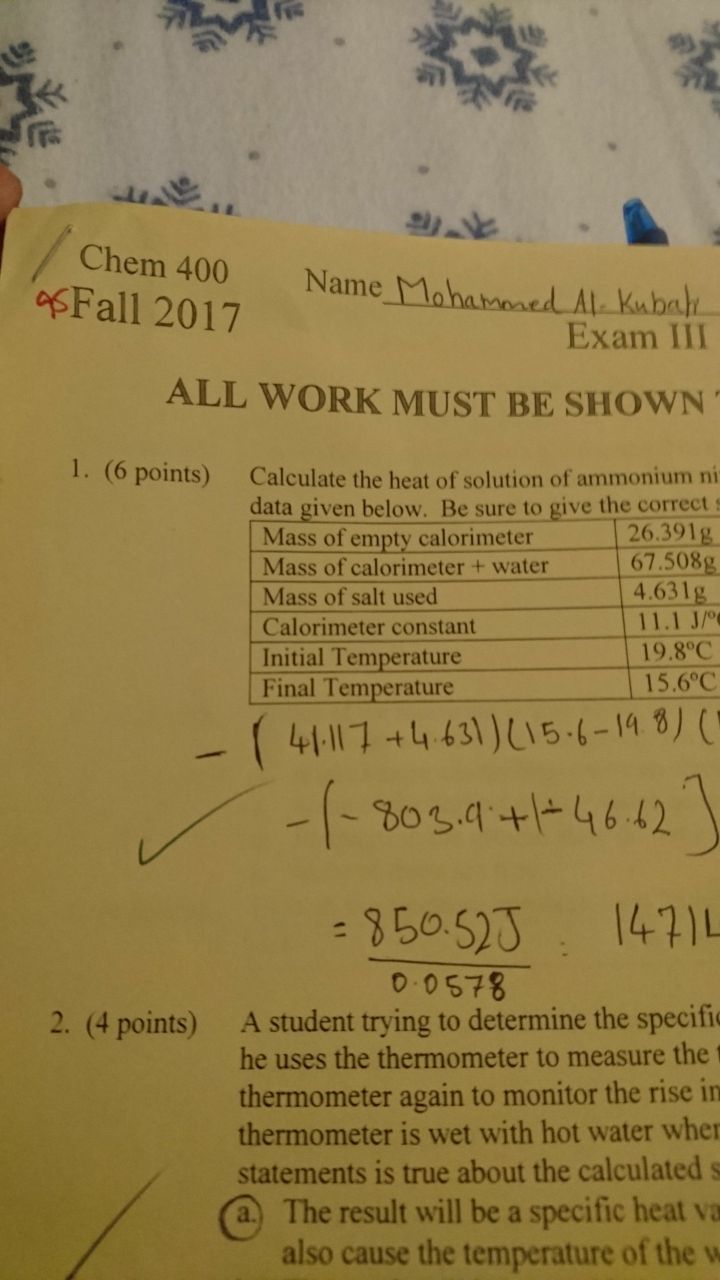 Chem 400
Name Mohammed Al-Kubati
95
Fall 2017
Exam III
ALL WORK MUST BE SHOWN
1. (6 points) Calculate the heat of solution of ammonium ni
data given below. Be sure to give the correct s
Mass of empty calorimeter 26.391g
Mass of calorimeter + water 67.508g
Mass of salt used 4.631g
Calorimeter constant 11.1 J/°
Initial Temperature 19.8°C
Final Temperature 15.6°C
- ( 41.117 + 4.631)(15.6-19.8) (
-(-803.9 + - 46.62 ]
= 850.52J : 1471
0.0578
2. (4 points) A student trying to determine the specific
he uses the thermometer to measure the t
thermometer again to monitor the rise in
thermometer is wet with hot water when
statements is true about the calculated s
a. The result will be a specific heat va
also cause the temperature of the w